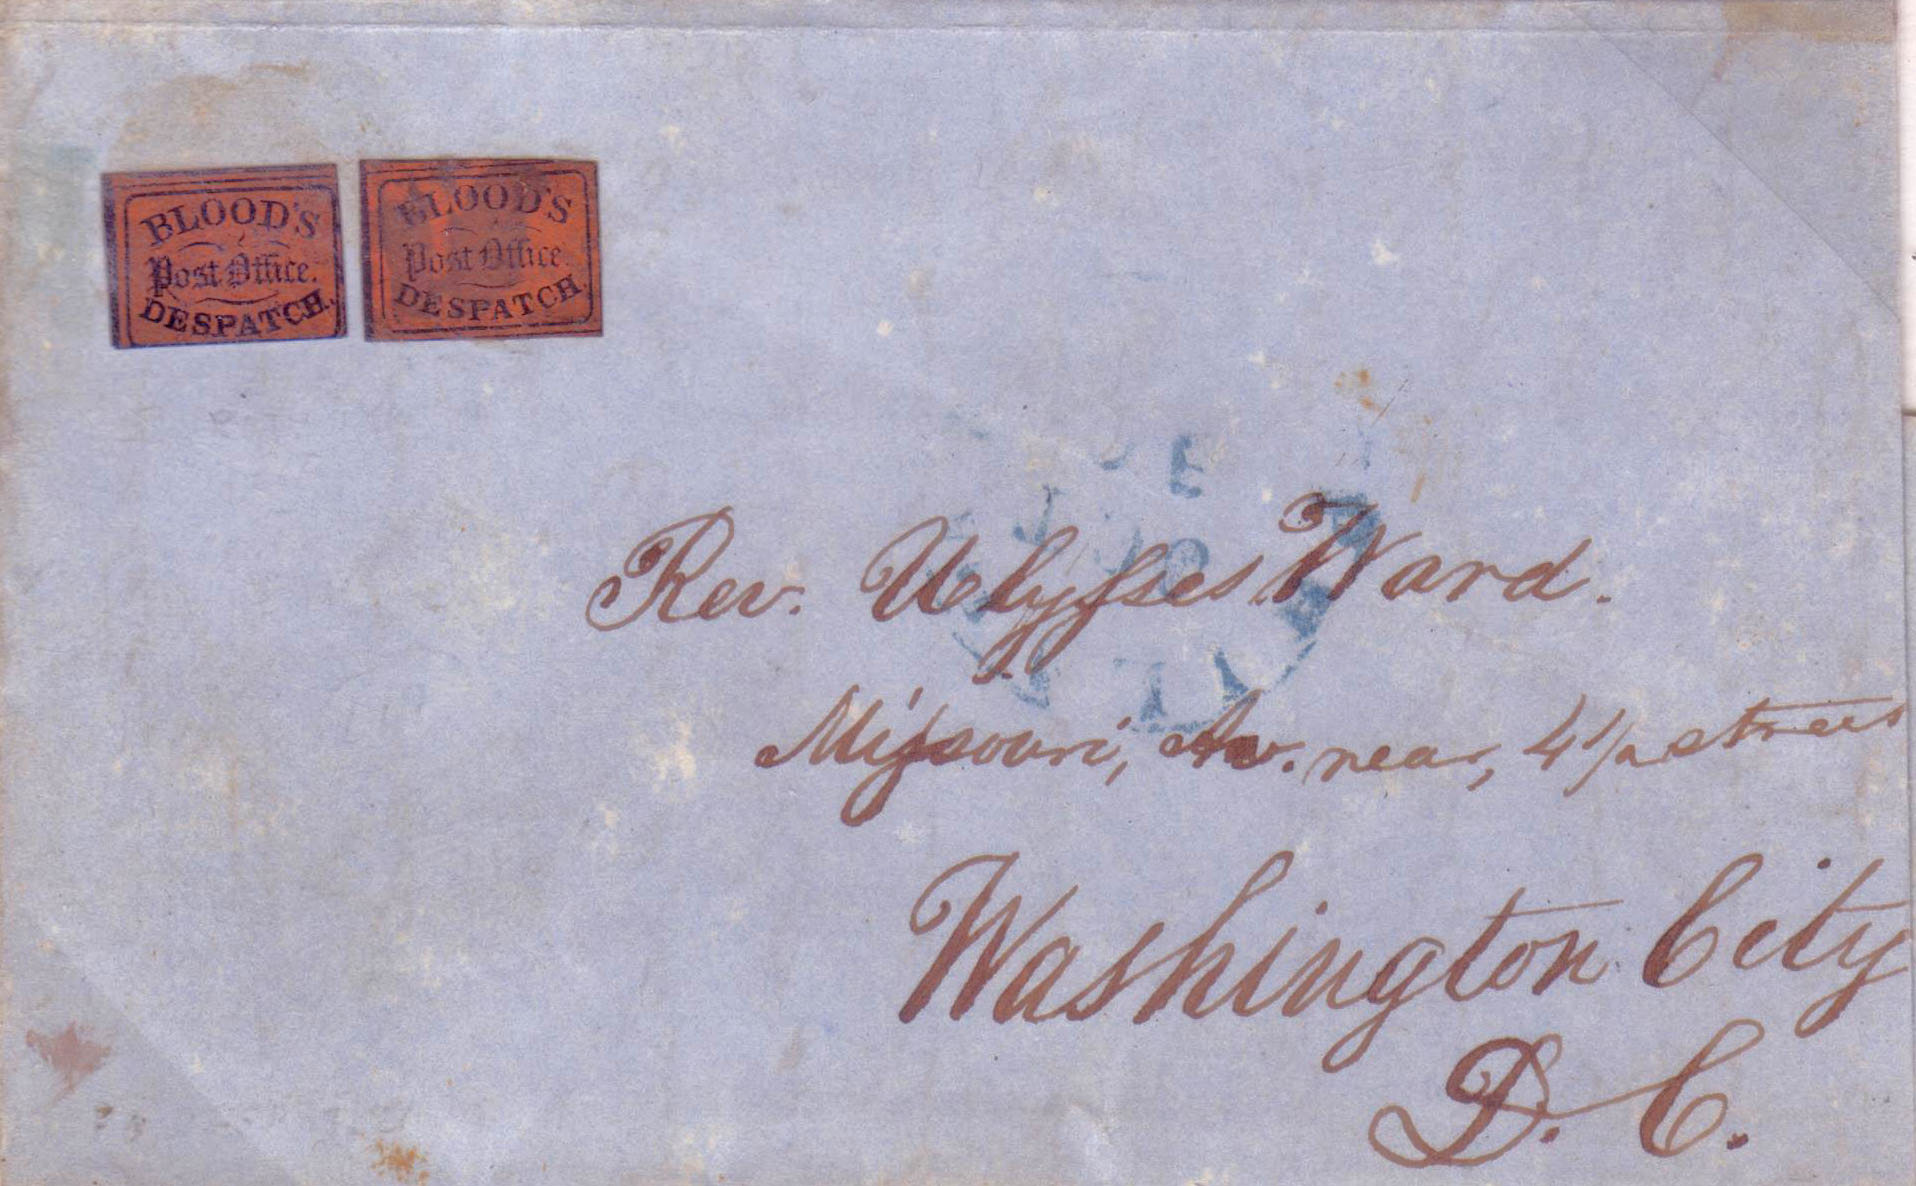 BLOOD'S
Post Office.
DESPATCH.
BLOOD'S
Post Office.
DESPATCH
Rev. Ulysses Ward.
Missouri, Av. near, 4 1/2 street
Washington City
D. C.